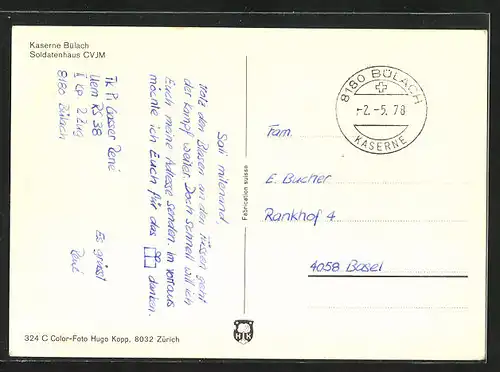 Kaserne Bülach
Soldatenhaus CVJM
Sali mitenand,
trotz den Blasen an den Füssen geht
der Kampf weiter. Doch schnell will ich
Euch meine Adresse senden. Im voraus
möchte ich Euch für das danken.
Es grüsst
René
Tk Pi Gasser René
Uem RS 38
I Kp 2. Zug
8180 Bülach
8180 BÜLACH
-2.-5.78
KASERNE
Fam.
E. Bucher
Rankhof 4
4058 Basel
Fabrication suisse
HK
324 C Color-Foto Hugo Kopp, 8032 Zürich